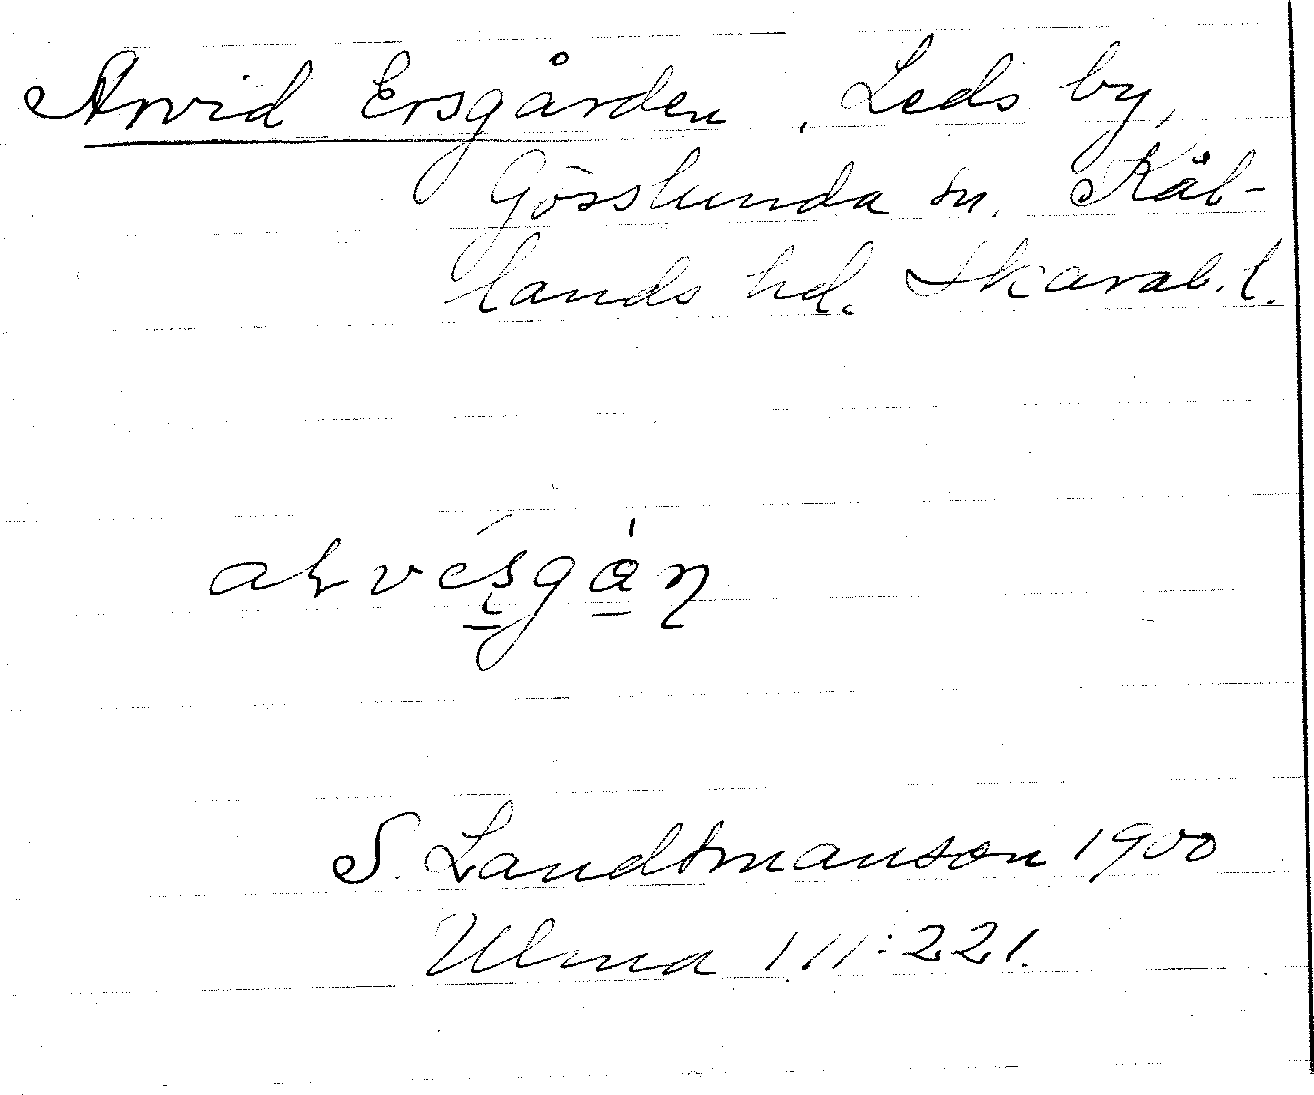 Arvid Ersgården, Leds by,
Gösslunda sn. Kål-
lands hd. Skarab. l.
S. Landtmanson 1900
Ulma 111:221.